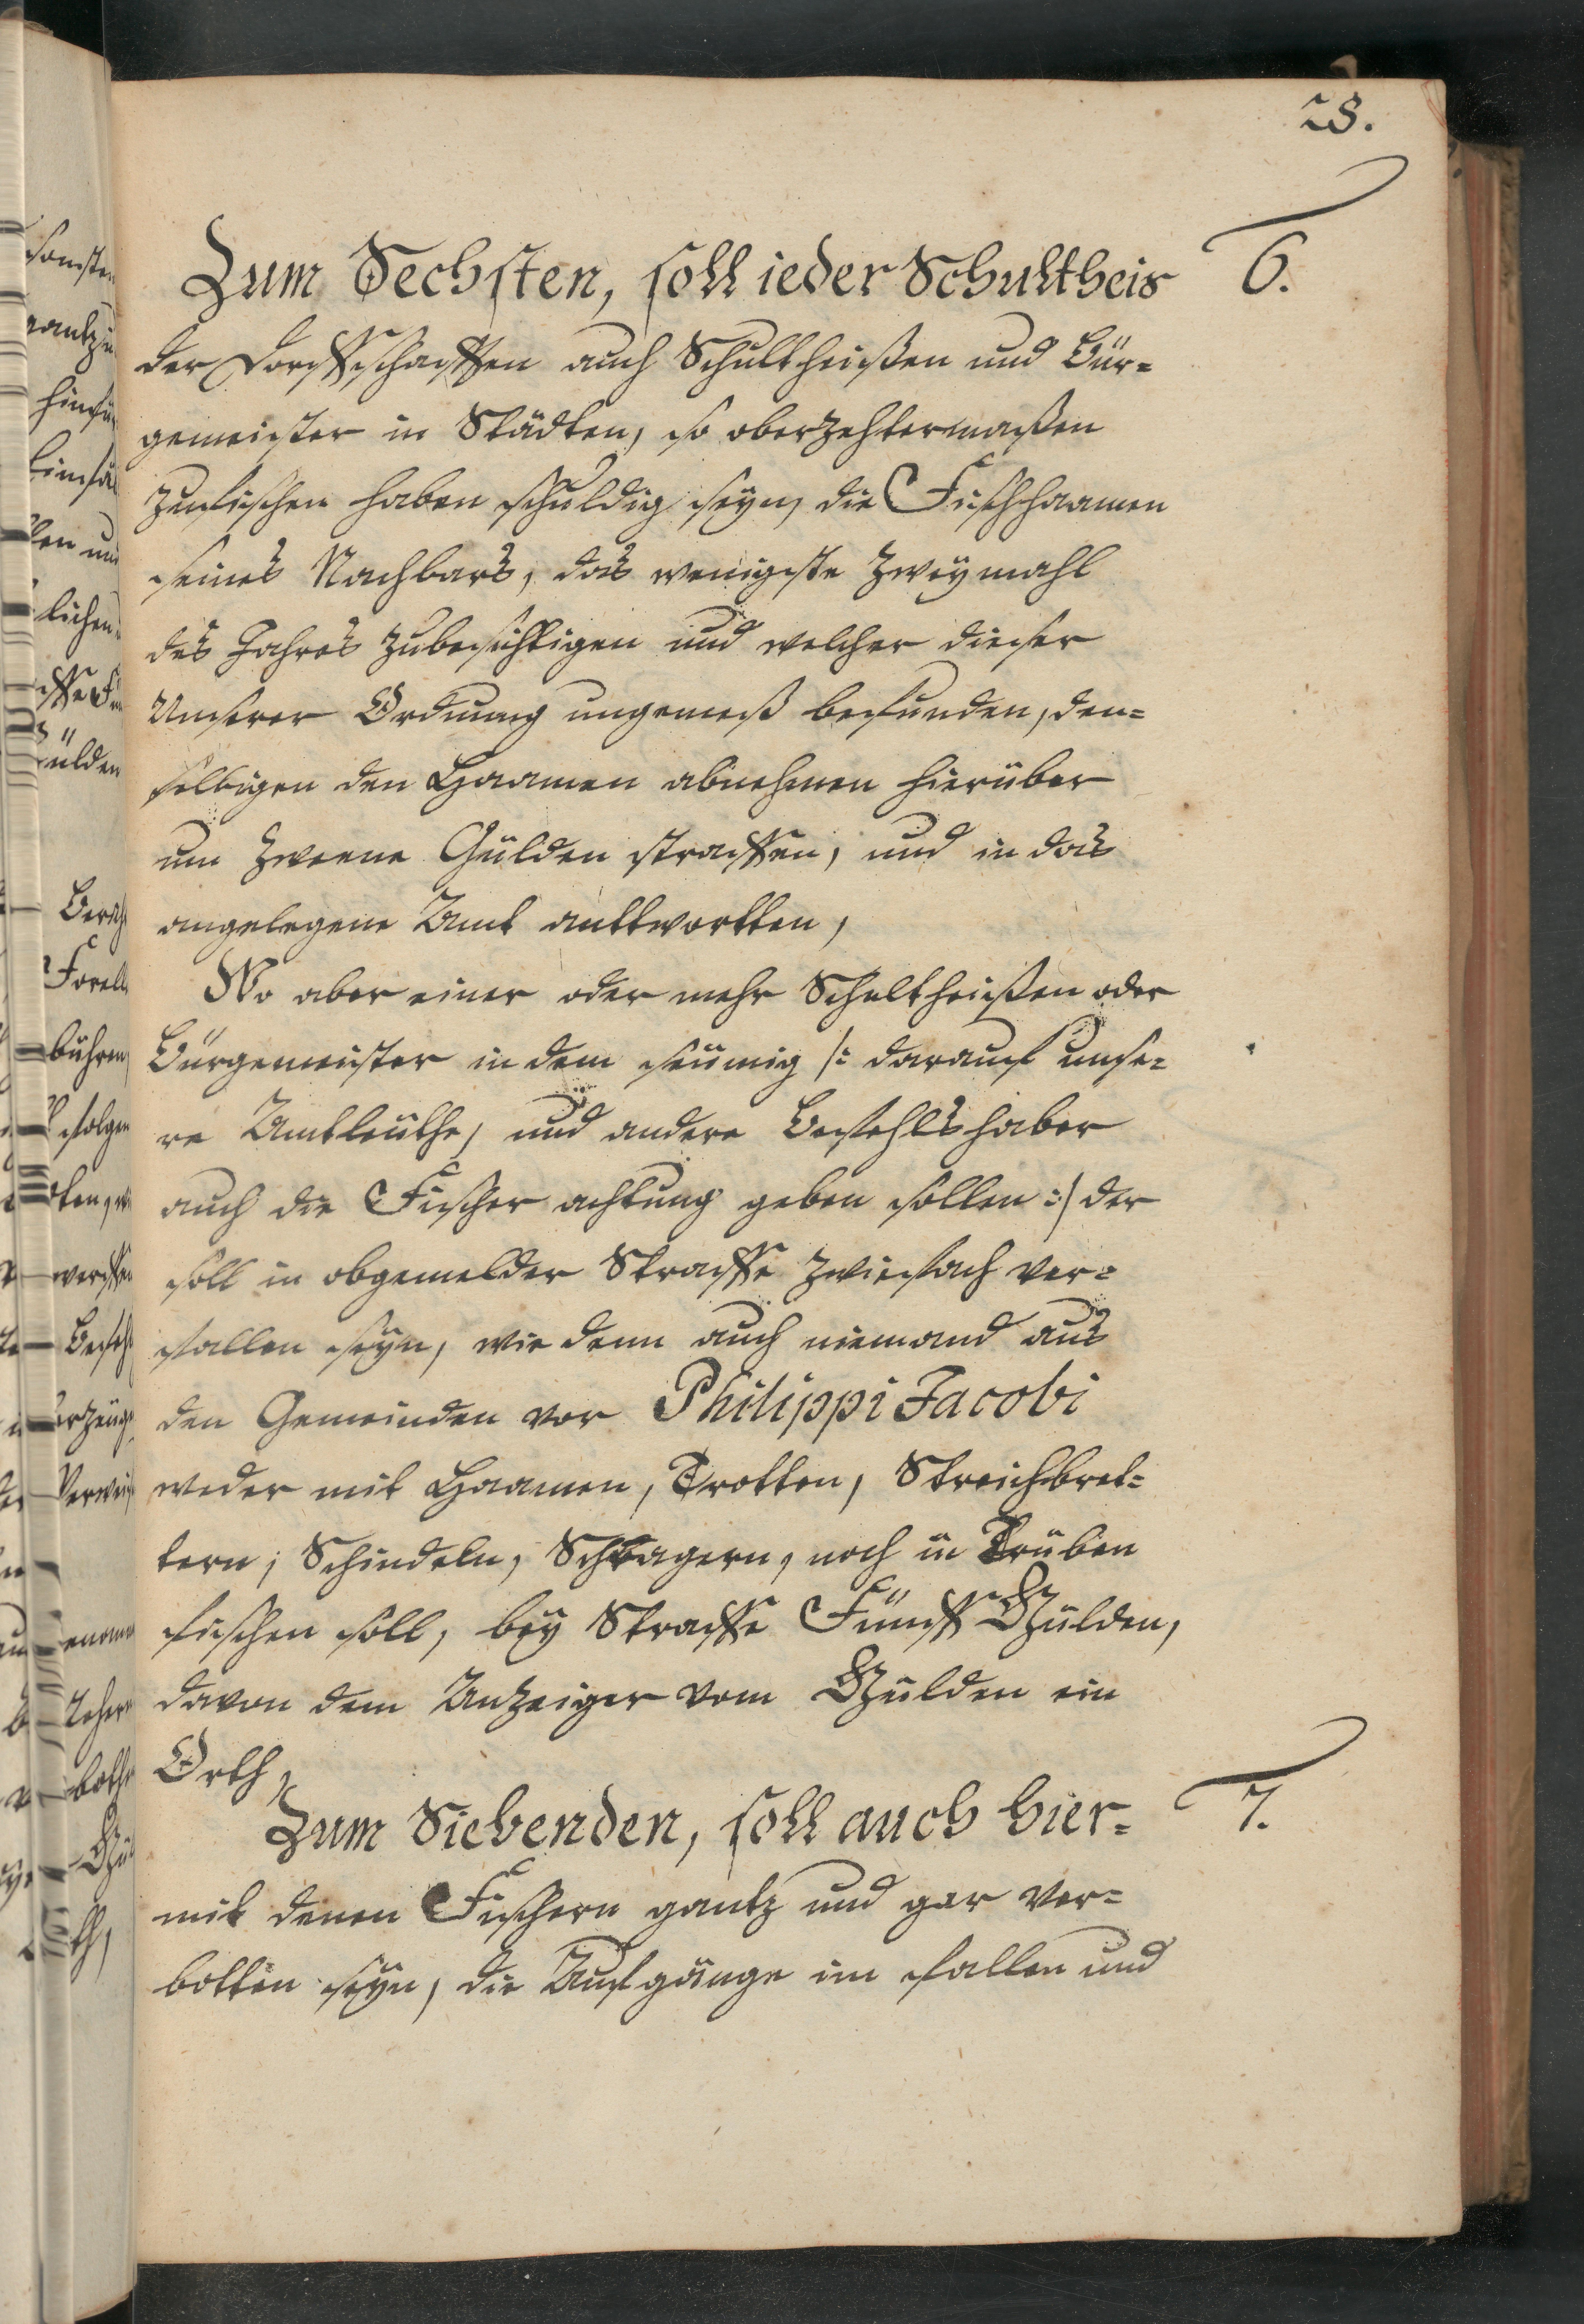 28.
Zum Sechsten, soll ieder Schultheis 6.
der Dorffschafften auch Schultheißen und Bür=
gemeister in Städten, so oberzehltermaßen
zufischen haben schuldig seyn, die Fischhaamen
seines Nachbars, das wenigste zweymahl
des Jahres zubesichtigen und welcher dieser
Unserer Ordnung ungemeß befunden, den=
selbigen den Haamen abnehmen hierüber
um zweene Gülden straffen, und in das
angelegene Amt anttwortten,
Wo aber einer oder mehr Schultheißen oder
Bürgemeister in dem seümig /: darauf unse=
re Amtleüthe, und andere Befehlshaber
auch die Fischer achtung geben sollen :/ der
soll in obgemelder Straffe zwiefach ver=
fallen seyn, wie denn auch niemand aus
den Gemeinden vor Philippi Jacobi
weder mit Haamen, Trotten, Streichbret=
tern, Schindeln, noch in Trüben
fischen soll, bey Straffe Fünff Gülden,
davon dem Anzeiger vom Gülden ein
Orth,
Zum Siebenden, soll auch hier= 7.
mit denen Fischern gantz und gar ver=
botten seyn, die Aufgänge im fallen und